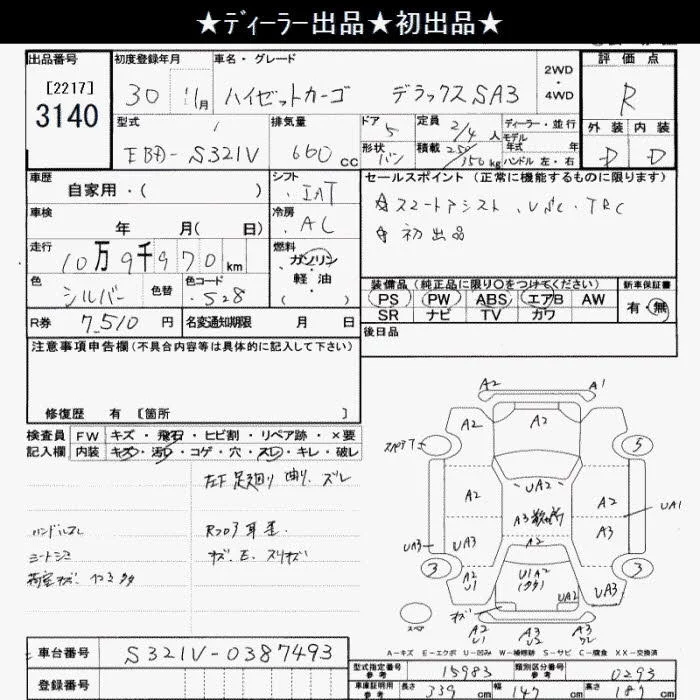 ★ディーラー出品★初出品★
出品番号
[2217]
3140
初度登録年月
30 11月
車名・グレード
ハイゼットカーゴ デラックスSA3
2WD
・
4WD
評価点
R
外装 内装
D D
型式
EBD-S321V
排気量
660cc
ドア
5
形状
バン
定員
2/4人
積載
250/150kg
ディーラー・並行
モデル
年式 年
ハンドル 左・右
車歴
自家用・( )
シフト
IAT
車検
年 月( 日)
冷房
AC
走行
10万9千970km
燃料
ガソリン
・
軽油
・( )
色
シルバー
色替
色コード
528
R券
7,510円
名変通知期限 月 日
セールスポイント (正常に機能するものに限ります)
☆スマートアシスト、VSC、TRC
☆初出品
装備品(純正品に限り○をつけてください)
PS PW ABS エアB AW
SR ナビ TV カワ
新車保証書
有・無
後日品
注意事項申告欄(不具合内容等は具体的に記入して下さい)
修復歴 有 [箇所 ]
検査員
記入欄
FW キズ・飛石・ヒビ割・リペア跡・×要
内装 キズ・汚れ・コゲ・穴・スレ・キレ・破レ
左F足廻り曲り、ズレ
ハンドルスレ
シートシミ
荷室キズ、
キズ、E、スリキズ
A2 A1
A2 A2
スペア7 5
A2 UA2 A2
A3 A3 UA1
UA3 UA3 A2
3 A2 U1 U1A2 UA3 3
UA2
キズ
スペア
A2 U1 A3 U2 A2
A-キズ E-エクボ U-凹み W-補修跡 S-サビ C-腐食 XX-交換済
車台番号
S321V-0387493
登録番号
型式指定番号
参考
15983
類別区分番号
参考
0293
車庫証明用
参考
長さ 339cm 幅 147cm 高さ 187cm